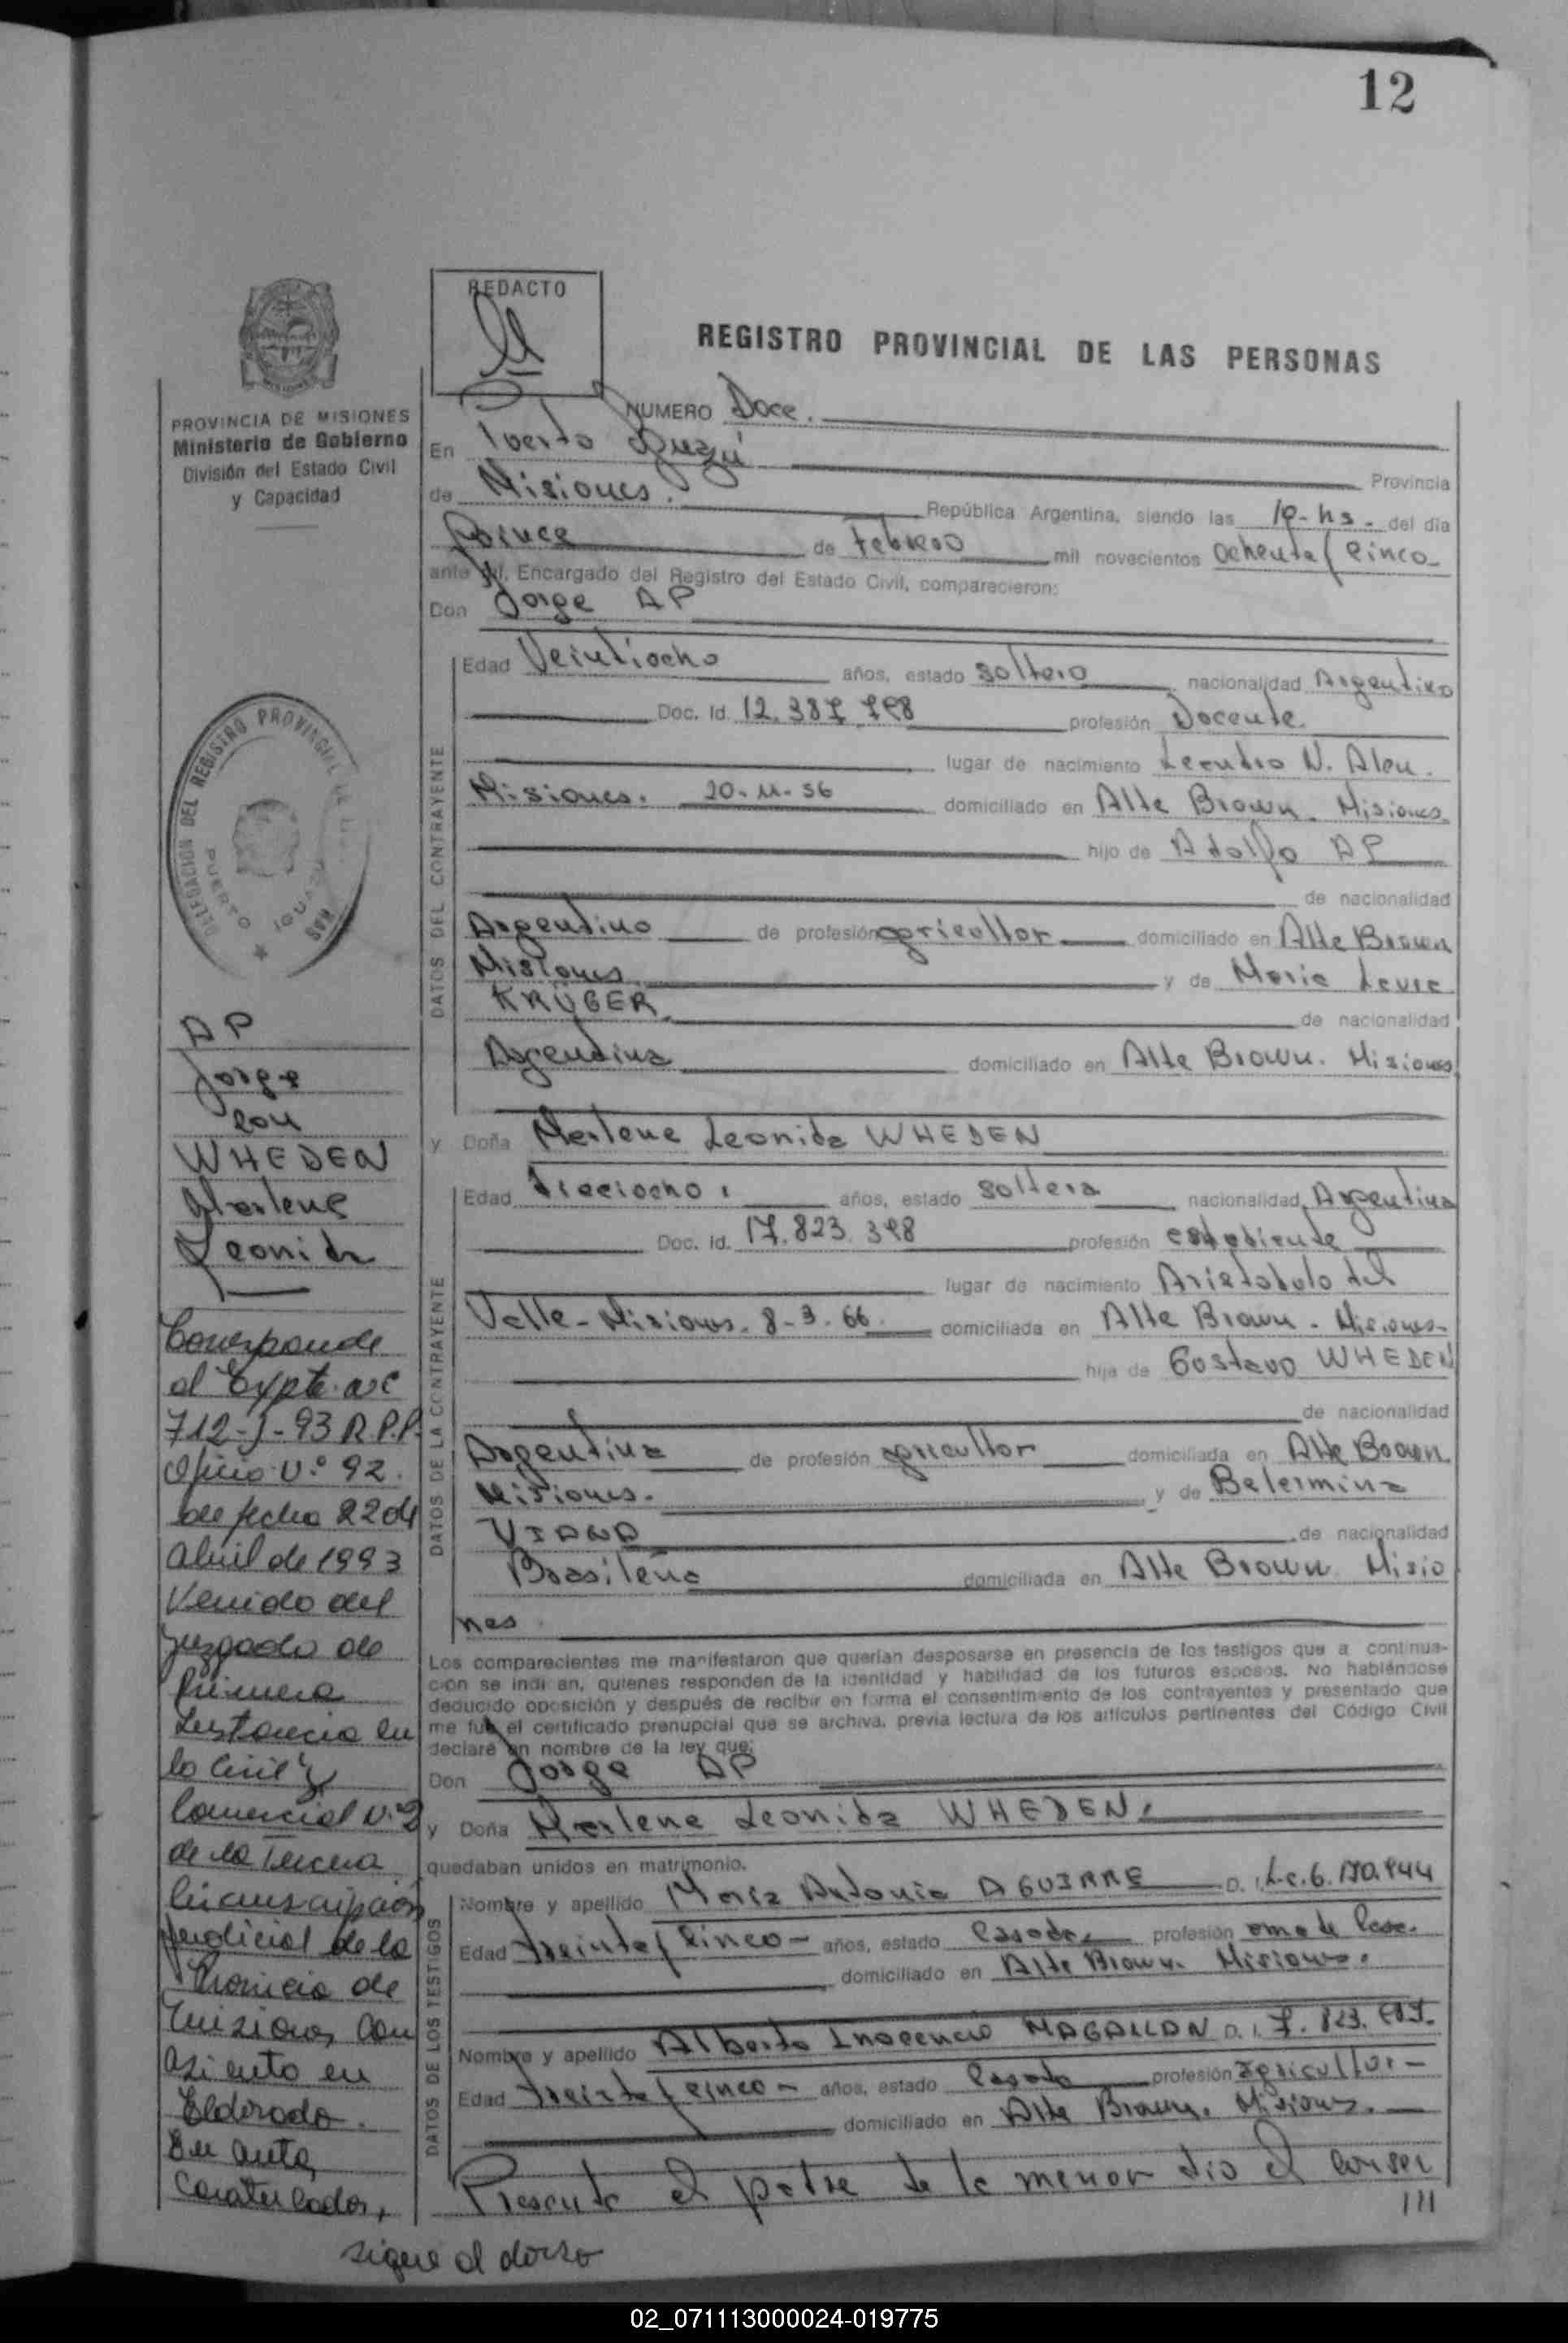 12
REDACTO
REGISTRO PROVINCIAL DE LAS PERSONAS
PROVINCIA DE MISIONES
Ministerio de Gobierno
División del Estado Civil
y Capacidad
DELEGACION DEL REGISTRO PROVINCIAL DE LAS
PUERTO IGUAZU
AP
Jorge
con
WHEDEN
Marlene
Leonida
Corresponde
al Expte.
712-J-93 R.P.P.
Oficio Nº 92.
de fecha 22 de
abril de 1993
Venido del
Juzgado de
Primera
Instancia en
lo Civil y
Comercial Nº 2
de la Tercera
Circunscripción
Judicial de la
Provincia de
Misiones, con
asiento en
Eldorado.
En autos
caratulados,
NUMERO Doce.
En Puerto Iguazú Provincia
de Misiones. República Argentina, siendo las 10-hs. del día
Quince de Febrero mil novecientos ochenta y cinco
ante mí, Encargado del Registro del Estado Civil, comparecieron:
Don Jorge AP
DATOS DEL CONTRAYENTE
Edad Veintiocho años, estado soltero nacionalidad Argentino
Doc. Id. 12.387.798 profesión Docente.
lugar de nacimiento Leandro N. Alem.
Misiones. 20-11-56 domiciliado en Alte Brown. Misiones.
hijo de Adolfo AP
de nacionalidad
Argentino de profesión agricultor domiciliado en Alte Brown
Misiones y de Maria Laura
KRÜGER de nacionalidad
Argentina domiciliado en Alte Brown. Misiones
y Doña Marlene Leonida WHEDEN
DATOS DE LA CONTRAYENTE
Edad dieciocho. años, estado soltera nacionalidad Argentina
Doc. Id. 17.823.398 profesión estudiante
lugar de nacimiento Aristobulo del
Valle-Misiones. 8-3-66. domiciliada en Alte Brown - Misiones-
hija de Gustavo WHEDEN
de nacionalidad
Argentina de profesión agricultor domiciliada en Alte Brown.
Misiones. y de Belermina
VIANA de nacionalidad
Brasileña domiciliada en Alte Brown Misio
nes.
Los comparecientes me manifestaron que querían desposarse en presencia de los testigos que a continua-
ción se indican, quienes responden de la identidad y habilidad de los futuros esposos. No habiéndose
deducido oposición y después de recibir en forma el consentimiento de los contrayentes y presentado que
me fue el certificado prenupcial que se archiva, previa lectura de los artículos pertinentes del Código Civil
declaré en nombre de la ley que:
Don Jorge AP
y Doña Marlene Leonida WHEDEN.
quedaban unidos en matrimonio.
DATOS DE LOS TESTIGOS
Nombre y apellido Maria Antonia AGUIRRE D. I. L.C. 6.170.944
Edad treinta y cinco - años, estado casada profesión ama de casa.
domiciliado en Alte Brown. Misiones.
Nombre y apellido Alberto Inocencio MAGALLAN D. I. 7.823.
Edad treinta y cinco - años, estado casado profesión agricultor-
domiciliado en Alte Brown. Misiones.
Presente el padre de la menor dio el consen
///
sigue al dorso
02_071113000024-019775